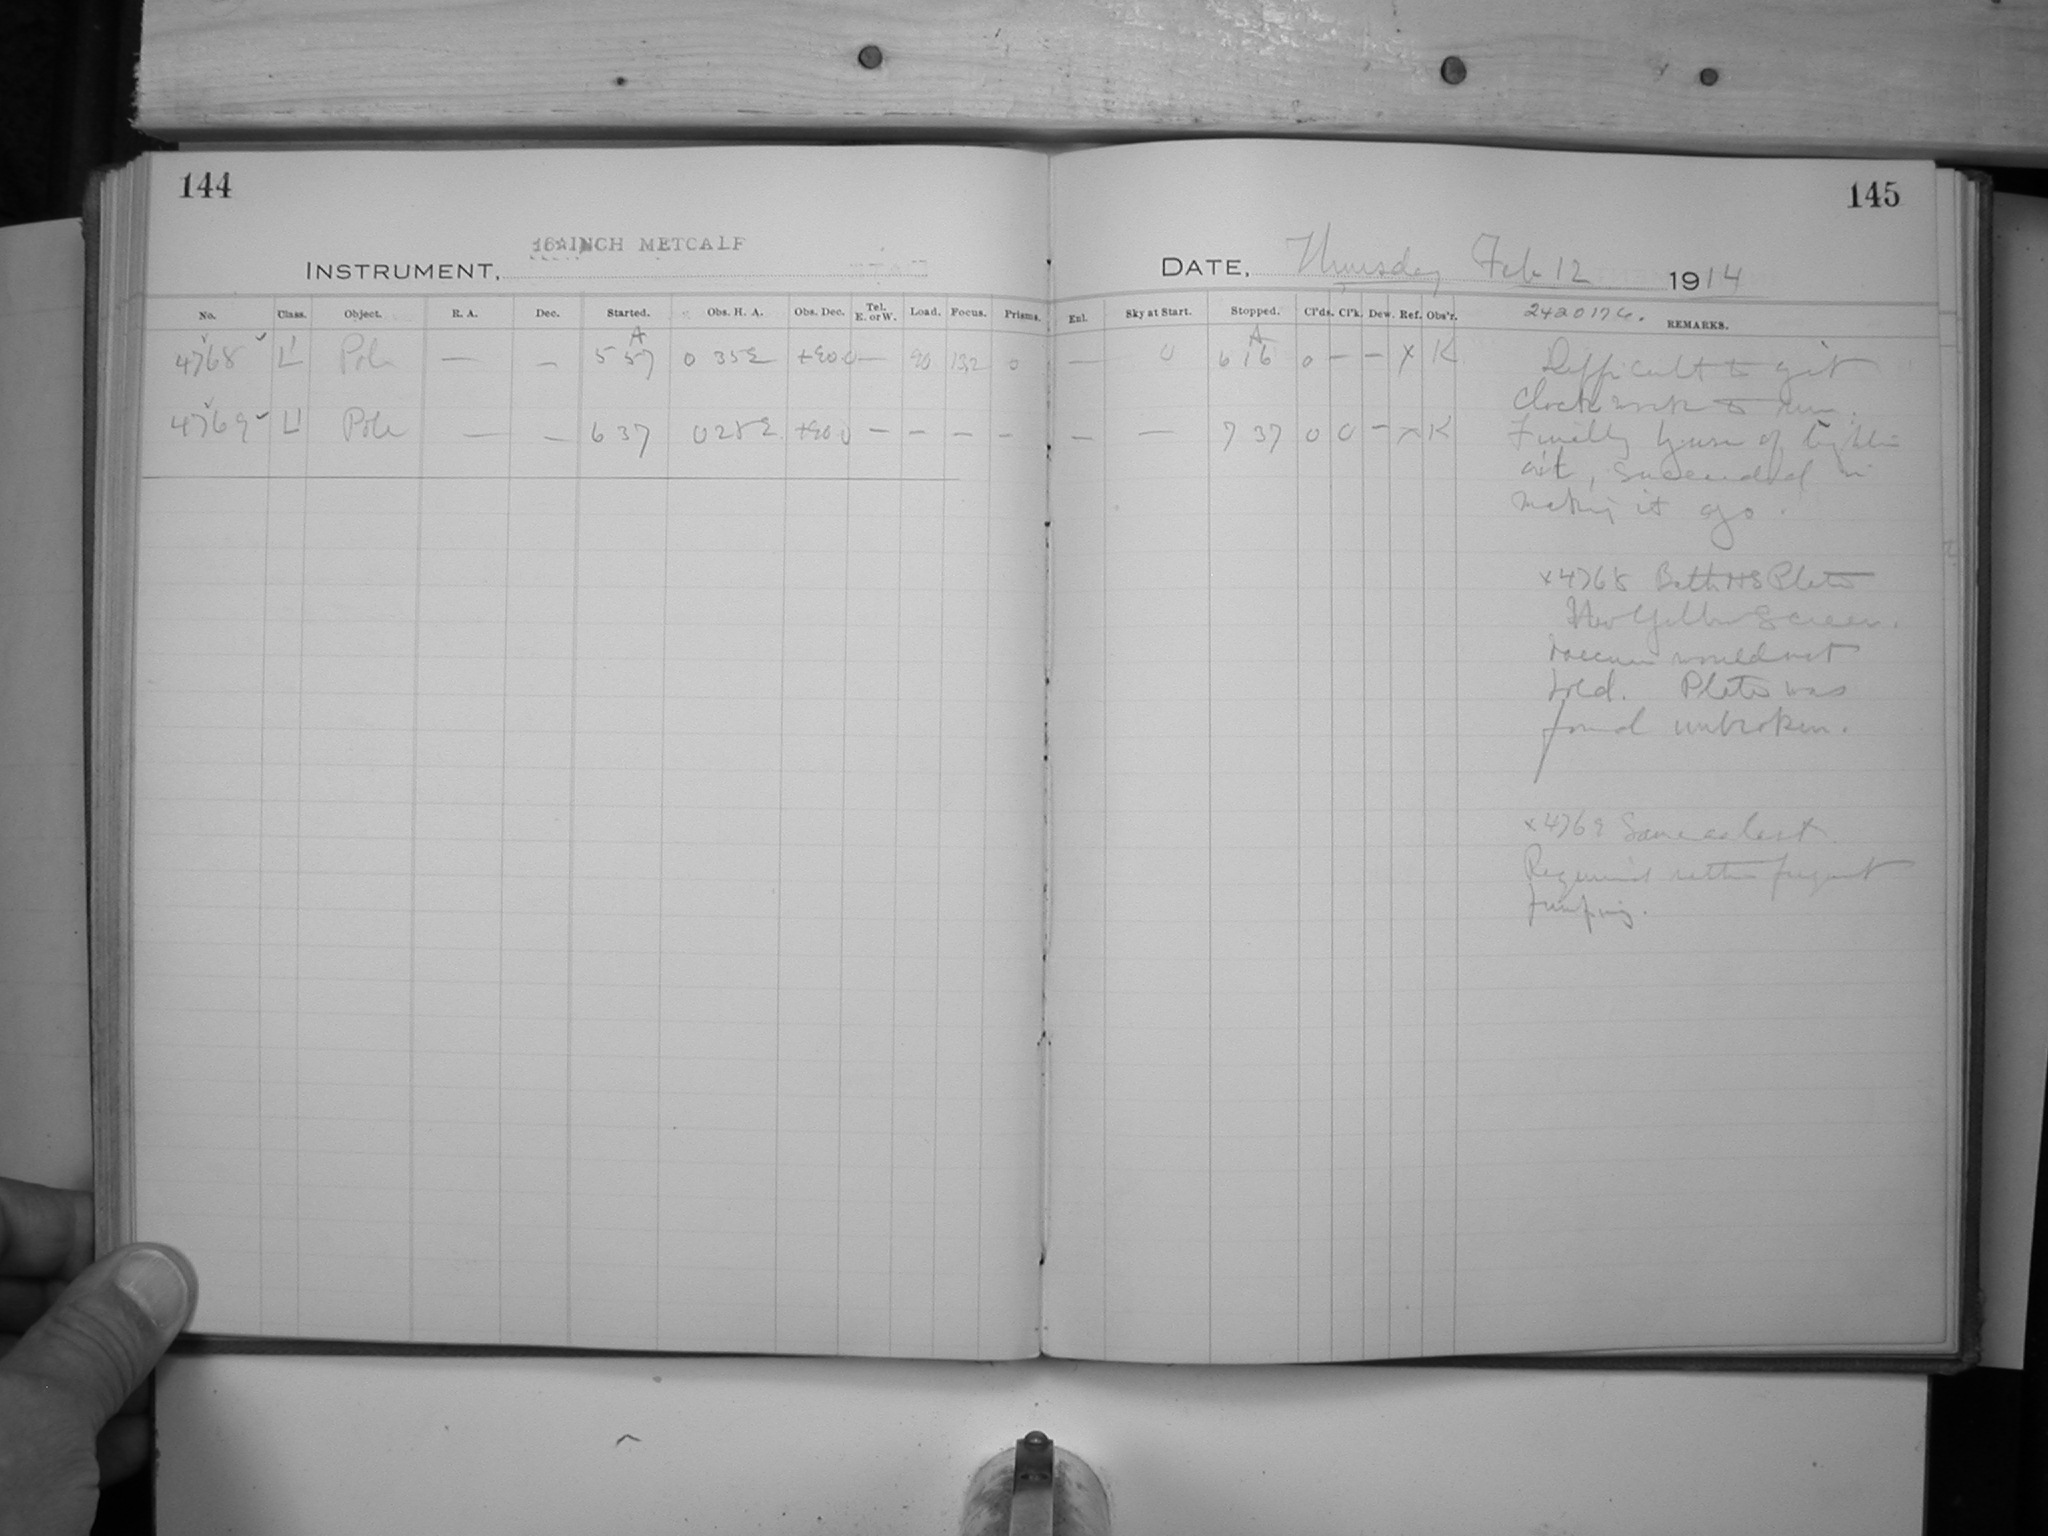 144
16 INCH METCALF
INSTRUMENT,
No. Class. Object. R. A. Dec. Started. Obs. H. A. Obs. Dec. Tel. E. or W. Load. Focus. Prisms.
4768 L' Pole — — 5 57 0 35 E +90 0 — 90 132 0
4769 L' Pole — — 6 37 0 28 E +90 0 — — — —
145
DATE, Thursday Feb 12 1914
Enl. Sky at Start. Stopped. Cl'ds. Cl'k. Dew. Ref. Obs'r. 2420176. REMARKS.
— 0 6 16 0 — — X K
— — 7 37 0 0 — X K
Difficult to get
Clock work to run.
Finally by use of
it, succeeded in
making it go.
x4768 Bath HS Plate
New Yellow Screen.
Vacuum would not
hold. Plate was
found unbroken.
x4769 Same as last
Required rather frequent
pumping.